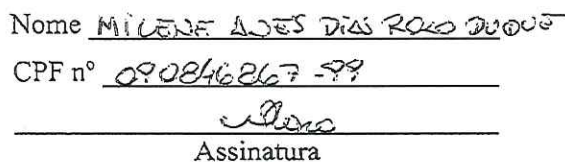 Nome MILENE ALVES DIAS ROLO DUQUE
CPF nº 090846867-99
Assinatura